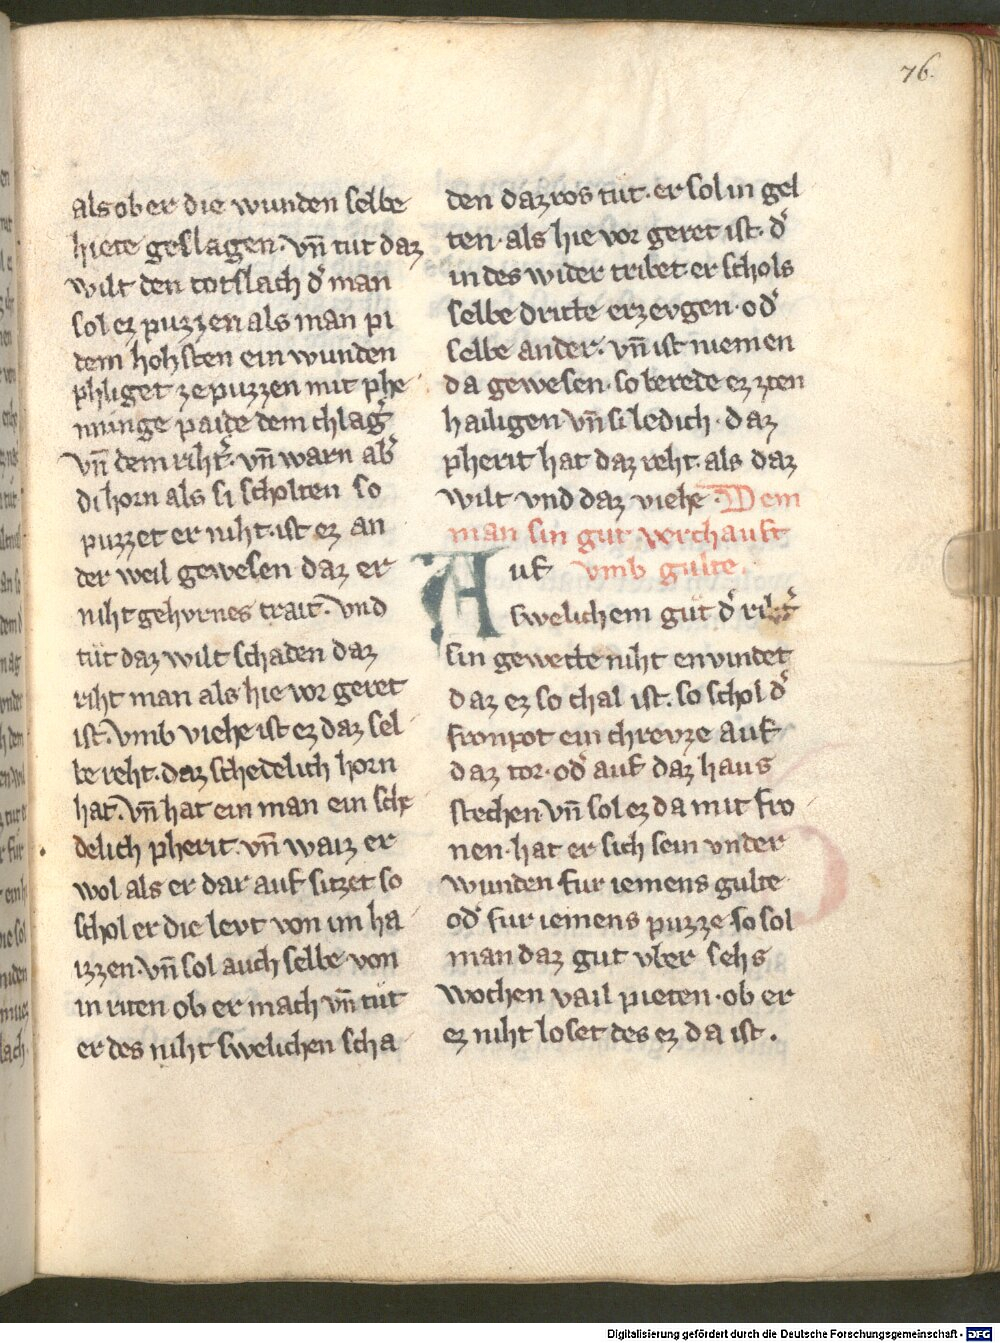 76.
als ob er die wunden selbe
hiete geslagen. vn̄ tut daz
wilt den totslach d᷑ man
sol ez puzzen als man pi
dem hohsten ein wunden
phliget ze puzzen mit phe
ninge paide dem chlag᷑
vn̄ dem riht᷑. vn̄ warn ab᷑
di horn als si scholten so
puzzet er niht. ist ez an
der weil gewesen daz er
niht gehvrnes trait. vnd
tůt daz wilt schaden daz
riht man als hie vor geret
ist. vmb viehe ist ez daz sel
be reht. daz schedelich horn
hat. vn̄ hat ein man ein sche
delich pherit. vn̄ waiz er
wol als er dar auf sitzet so
schol er die levt von im ha
izzen. vn̄ sol auch selbe von
in riten ob er mach vn̄ tůt
er des niht swelichen scha
den daz ros tut. er sol in gel
ten. als hie vor geret ist. d᷑
in des wider tribet er schols
selbe dritte erzevgen. od᷑
selbe ander. vn̄ ist niemen
da gewesen. so berede ez zten
hailigen vn̄ si ledich. daz
pherit hat daz reht. als daz
wilt. vnd daz viehe. Dem
man sin gut verchauft
Auf vmb gulte.
swelichem gůt d᷑ riht᷑
sin gewette niht en vindet
daz ez so chal ist. so schol d᷑
fronpot ein chrevze auf
daz tor. od᷑ auf daz haus
stechen vn̄ sol ez da mit fro
nen. hat er sich sein vnder
wunden fur iemens gulte
od᷑ fur iemens puzze so sol
man daz gut vber sehs
wochen vail pieten. ob er
ez niht loset des ez da ist.
Digitalisierung gefördert durch die Deutsche Forschungsgemeinschaft - DFG